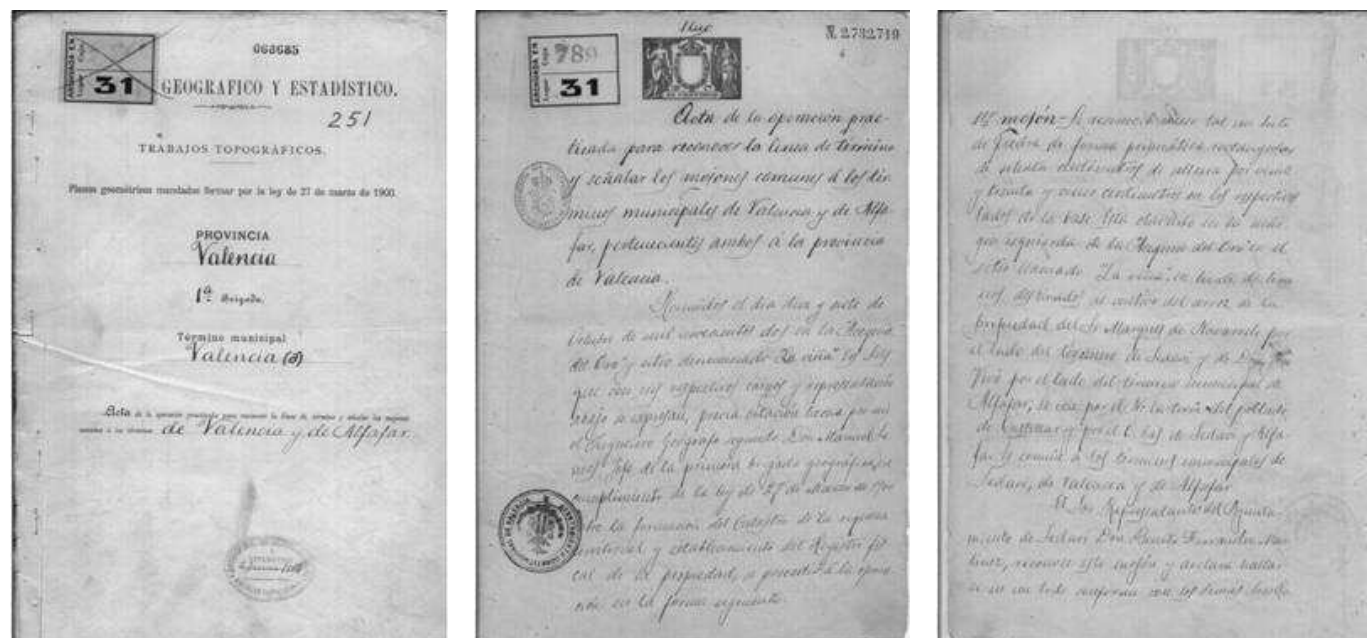 ARCHIVADA EN
Legajo Caja
31
063685
GEOGRÁFICO Y ESTADÍSTICO.
251
TRABAJOS TOPOGRÁFICOS.
Planos geométricos mandados llevar por la ley de 27 de marzo de 1900
PROVINCIA
Valencia
1ª Brigada.
Término municipal
Valencia (a)
Acta de la operación practicada para reconocer la línea de término y señalar los mojones
comunes a los términos de Valencia y de Alfafar.
ARCHIVADA EN
Legajo Caja
789
31
N. 2.732.719
Acta de la operación prac-
ticada para reconocer la linea de término
y señalar los mojones comunes á los tér-
minos municipales de Valencia y de Alfa-
far, pertenecientes ambos á la provincia
de Valencia.
Reunidos el dia diez y siete de
Octubre de mil novecientos dos en la Acequia
del Oro y sitio denominado "La viña" los Sres
que con sus respectivos cargos y representación
abajo se expresan, previa citación hecha por mi
el Ingeniero Geógrafo Don Manuel
Jefe de la primera brigada geográfica, en
cumplimiento de la ley de 27 de Marzo de 1900
sobre la formación del Catastro de la riqueza
territorial y establecimiento del Registro fis-
cal de la propiedad, á proceder á la opera-
ción en la forma siguiente.
mojón = Se reconoció como tal un hito
de piedra de forma prismática rectangular
de ochenta centímetros de altura por veinte
y treinta y cinco centímetros en los respectivos
lados de la base. Está clavado en la mar-
gen izquierda de la Acequia del Oro en el
sitio llamado "La viña" en linde de terre-
nos destinados al cultivo del arroz de la
propiedad del Sr Marqués de por
el lado del término de Sedaví y de Don
Vivó por el lado del término municipal de
Alfafar, se ve por el N. la torre del poblado
de Castellar y por el O. las de Sedaví y Alfa-
far. Es común á los términos municipales de
Sedaví, de Valencia y de Alfafar.
El Sr. Representante del Ayunta-
miento de Sedaví Don Fernández Mar-
tínez, reconoce este mojón y declara hallar-
se en un todo conforme con los demás